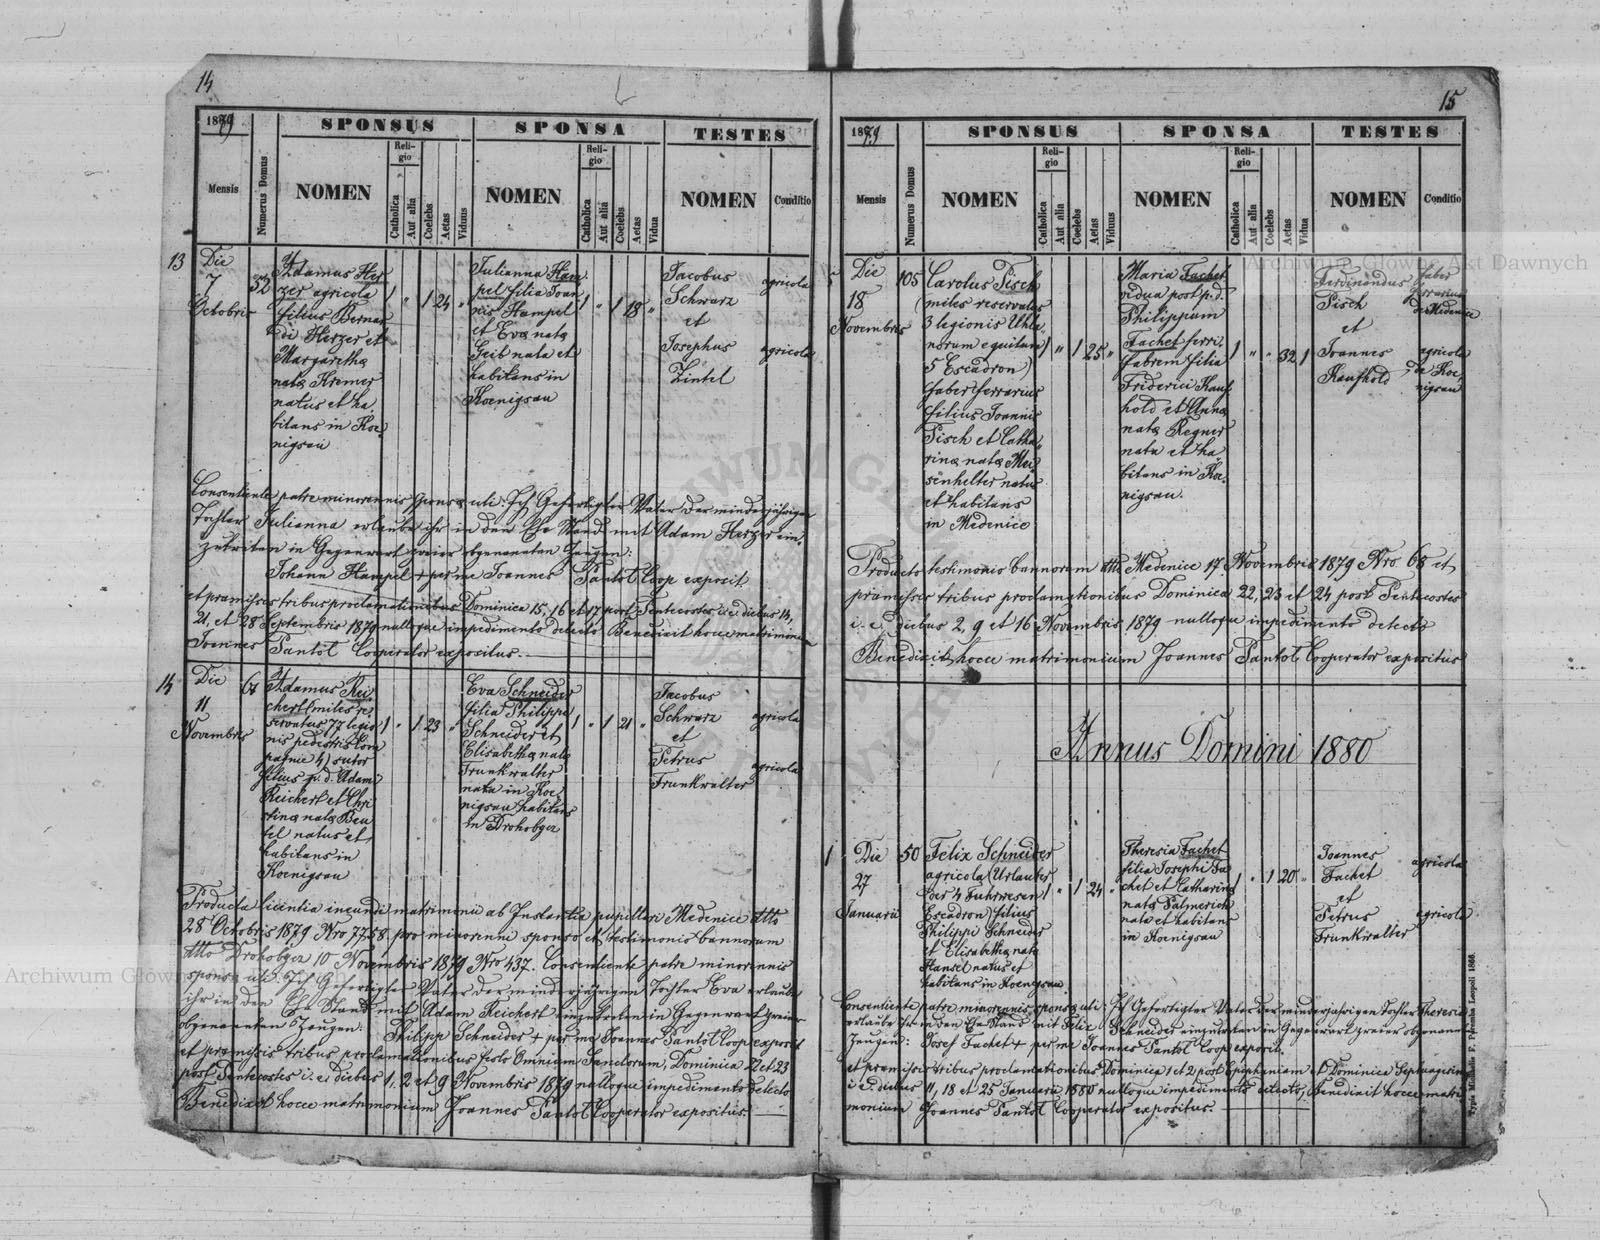 14
1879
SPONSUS
SPONSA
TESTES
Mensis
Numerus Domus
NOMEN
Religio
Catholica
Aut alia
Coelebs
Aetas
Viduus
NOMEN
Religio
Catholica
Aut alia
Coelebs
Aetas
Vidua
NOMEN
Conditio
13
Die
7
Octobris
52
Adamus Her
zer agricola
filius Bernar
di Herzer et
Margarethæ
natæ Kremer
natus et ha,
bitans in Koe,
nigsau
1 " 1 24 "
Julianna Ham
pel filia Joan
nis Hampel
et Evæ natæ
Geib nata et
habitans in
Koenigsau
1 " 1 18 "
Jacobus
Schwarz
et
Josephus
Zintel
agricola
agricola
Consentiente patre minorennis sponsæ uti: Ich Gefertigter Vater der minderjährigen
Tochter Julianna erlaube ihr in den Ehe Stand mit Adam Herzer ein,
zutreten in Gegenwart zweier obgenannten Zeugen:
Johann Hampel + per me Joannes Santol Coop exposit
et præmissis tribus proclamationibus Dominica 15, 16 et 17 post Pentecostes i.e. diebus 14,
21, et 28 Septembris 1879 nulloque impedimento detecto Benedixit hocce matrimonium
Joannes Santol Cooperator expositus.
14
Die
11
Novembris
61
Adamus Rei,
chert (miles re,
servatus 77 legio
nis pedestris Com
paniæ 4) sutor
filius p. d. Adami
Reichert et Chri
stinæ natæ Beu
tel natus et
habitans in
Koenigsau
1 " 1 23 "
Eva Schneider
filia Philippi
Schneider et
Elisabethæ natæ
Frunkwalter
nata in Koe,
nigsau habitans
in Drohobycz
1 " 1 21 "
Jacobus
Schwarz
et
Petrus
Frunkwalter
agricola
agricola
Producta licentia ineundi matrimonii ab Instantia pupillari Medenice dtto
28 Octobris 1879 Nro 7758. pro minorenni sponso et testimonio bannorum
dtto Drohobycz 10 Novembris 1879 Nro 437. Consentiente patre minorennis
sponsæ uti: Ich Gefertigter Vater der minderjährigen Tochter Eva erlaube
ihr in den Ehe Stand mit Adam Reichert einzutreten in Gegenwart zweier
obgenannten Zeugen: Philipp Schneider + per me Joannes Santol Coop exposit
et præmissis tribus proclamationibus festo Omnium Sanctorum, Dominica 22 et 23
post Pentecostes i. e. diebus 1, 2 et 9 Novembris 1879 nulloque impedimento detecto
Benedixit hocce matrimonium Joannes Santol Cooperator expositus.
15
1879
SPONSUS
SPONSA
TESTES
Mensis
Numerus Domus
NOMEN
Religio
Catholica
Aut alia
Coelebs
Aetas
Viduus
NOMEN
Religio
Catholica
Aut alia
Coelebs
Aetas
Vidua
NOMEN
Conditio
Die
18
Novembris
105
Carolus Pisch
(miles reservatus
3 legionis Uhla,
norum equitum
5 Escadron)
faber ferrarius
filius Joannis
Pisch et Catha,
rinæ natæ Mei,
senhelter natus
et habitans
in Medenice
1 " 1 25 "
Maria Fachet
vidua post p. d.
Philippum
Fachet ferri,
fabrem filia
Friderici Kauf
hold et Annæ
natæ Regner
nata et ha,
bitans in Koe,
nigsau.
1 " " 32 1
Ferdinandus
Pisch
et
Joannes
Kaufhold
faber
ferrarius
de Medenice
agricola
de Koe,
nigsau
Producto testimonio bannorum dtto Medenice 17 Novembris 1879 Nro 68 et
præmissis tribus proclamationibus Dominica 22, 23 et 24 post Pentecostes
i. e. diebus 2, 9 et 16 Novembris 1879 nulloque impedimento detecto
Benedixit hocce matrimonium Joannes Santol Cooperator expositus
Annus Domini 1880
1
Die
27
Januarii
50
Felix Schneider
agricola (Urlauber
der 4 Fuhrwesen
Escadron) filius
Philippi Schneider
et Elisabethæ natæ
Hansel natus et
habitans in Koenigsau
1 " 1 24 "
Theresia Fachet
filia Josephi Fa
chet et Catharinæ
natæ Salmerich
nata et habitans
in Koenigsau
1 " 1 20 "
Joannes
Fachet
et
Petrus
Frunkwalter
agricola
agricola
Consentiente patre minorennis sponsæ uti: Ich Gefertigter Vater der minderjährigen Tochter Theresia
erlaube ihr in den Ehe Stand mit Felix Schneider einzutreten in Gegenwart zweier obgenann
Zeugen: Josef Fachet + per me Joannes Santol Coop exposit.
et præmissis tribus proclamationibus Dominica 1 et 2 post Epiphaniam et Dominica Septuagesima
i. e. diebus 11, 18 et 25 Januarii 1880 nulloque impedimento detecto, Benedixit hocce matri
monium Joannes Santol Cooperator expositus.
Archiwum Główne Akt Dawnych
Archiwum Główne